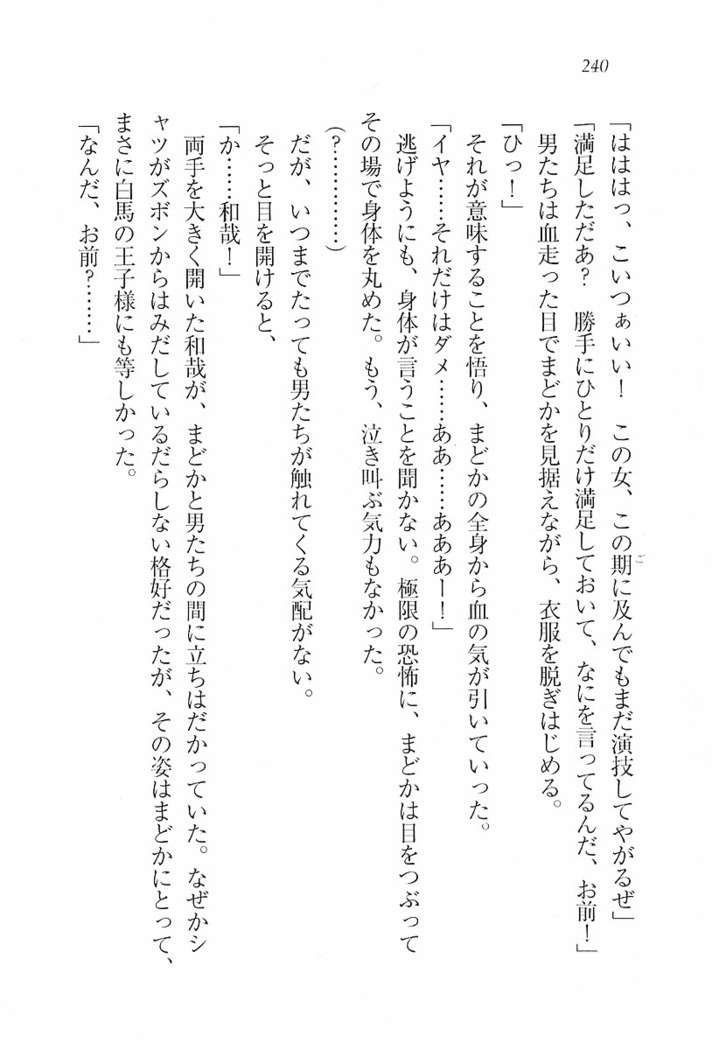 240
「はははっ、こいつぁいい！　この女、この期に及んでもまだ演技してやがるぜ」
「満足しただあ？　勝手にひとりだけ満足しておいて、なにを言ってるんだ、お前！」
　男たちは血走った目でまどかを見据えながら、衣服を脱ぎはじめる。
「ひっ！」
　それが意味することを悟り、まどかの全身から血の気が引いていった。
「イヤ……それだけはダメ……ああ……あああー！」
　逃げようにも、身体が言うことを聞かない。極限の恐怖に、まどかは目をつぶって
その場で身体を丸めた。もう、泣き叫ぶ気力もなかった。
（？…………）
　だが、いつまでたっても男たちが触れてくる気配がない。
　そっと目を開けると、
「か……和哉！」
　両手を大きく開いた和哉が、まどかと男たちの間に立ちはだかっていた。なぜかシ
ャツがズボンからはみだしているだらしない格好だったが、その姿はまどかにとって、
まさに白馬の王子様にも等しかった。
「なんだ、お前？……」